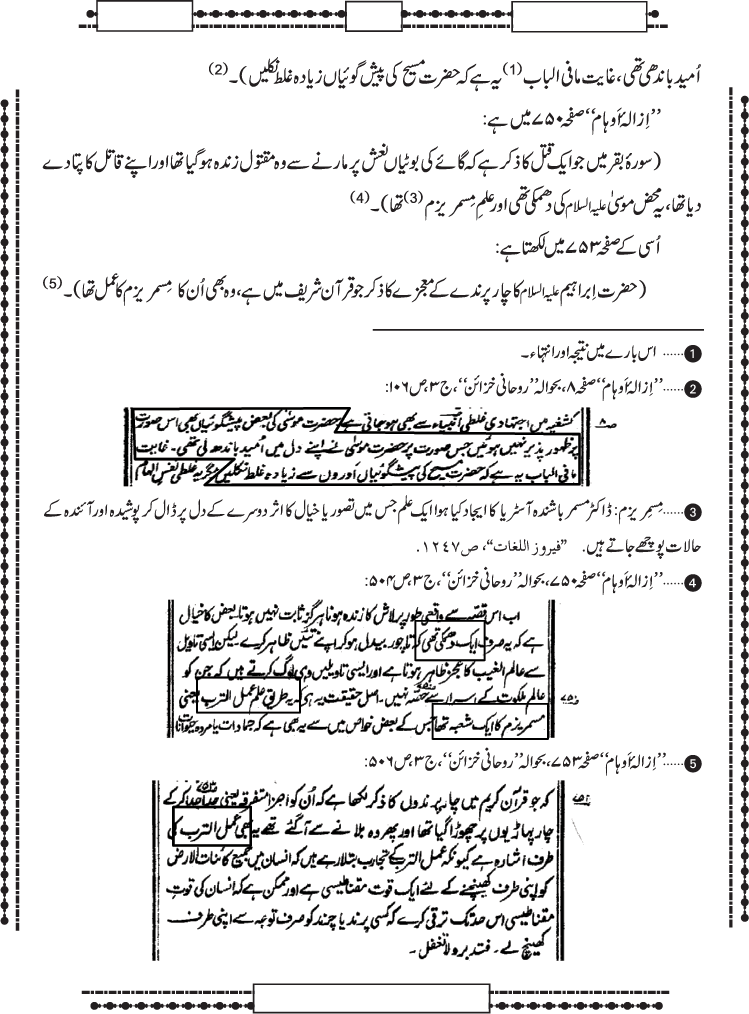 اُمید باندھی تھی، غایت مافی الباب (1) یہ ہے کہ حضرت مسیح کی پیش گوئیاں زیادہ غلط نکلیں)۔(2)
’’اِزالۂ اَوہام‘‘ صفحہ ۷۵۰ میں ہے:
(سورۂ بقر میں جو ایک قتل کا ذکر ہے کہ گائے کی بوٹیاں نعش پر مارنے سے وہ مقتول زندہ ہوگیا تھا اور اپنے قاتل کا پتا دے
دیا تھا، یہ محض موسیٰ علیہ السلام کی دھمکی تھی اور علمِ مِسمریزم (3) تھا)۔(4)
اُسی کے صفحہ ۷۵۳ میں لکھتا ہے:
(حضرت اِبراہیم علیہ السلام کا چار پرندے کے معجزے کا ذکر جو قرآن شریف میں ہے، وہ بھی اُن کا مِسمریزم کا عمل تھا)۔(5)
1...... اس بارے میں نتیجہ اور انتہاء۔
2...... ’’اِزالۂ اَوہام‘‘ صفحہ ۸، بحوالہ ’’روحانی خزائن‘‘، ج۳، ص۱۰۶:
کشفیہ میں اجتہادی غلطی انبیاء سے بھی ہو جاتی ہے حضرت موسیٰ کی بعض پیشگوئیاں بھی اس صورت
صـ۸
پر ظہور پذیر نہیں ہوئیں جس صورت پر حضرت موسیٰ نے اپنے دل میں اُمید باندھ لی تھی۔ غایت
مافی الباب یہ ہے کہ حضرت مسیح کی پیشگوئیاں اَوروں سے زیادہ غلط نکلیں مگر یہ غلطی نفس الہام
3...... مِسمِریزم: ڈاکٹر مسمر باشندہ آسٹریا کا ایجاد کیا ہوا ایک علم جس میں تصور یا خیال کا اثر دوسرے کے دل پر ڈال کر پوشیدہ اور آئندہ کے
حالات پوچھے جاتے ہیں. "فیروز اللغات"، ص١٢٤٧.
4...... ’’اِزالۂ اَوہام‘‘ صفحہ ۷۵۰، بحوالہ ’’روحانی خزائن‘‘، ج۳، ص۵۰۴:
اب اس قصہ سے واقعی طور پر لاش کا زندہ ہونا ہرگز ثابت نہیں ہوتا بعض کا خیال
ہے کہ یہ صرف ایک دھمکی تھی کہ تا چور بیدل ہو کر اپنے تئیں ظاہر کرے لیکن ایسی تاویل
سے عالم الغیب کا عجز ظاہر ہوتا ہے اور ایسی تاویلیں وہی لوگ کرتے ہیں کہ جن کو
عالم ملکوت کے اسرار سے حصہ نہیں۔ اصل حقیقت یہ ہے کہ یہ طریق علم عمل الترب یعنی
۷۵۰
مسمریزم کا ایک شعبہ تھا جس کے بعض خواص میں سے یہ بھی ہے کہ جمادات یا مردہ حیوانات
5...... ’’اِزالۂ اَوہام‘‘ صفحہ ۷۵۳، بحوالہ ’’روحانی خزائن‘‘، ج۳، ص۵۰۶:
کہ جو قرآن کریم میں چار پرندوں کا ذکر لکھا ہے کہ اُن کو اجزاء متفرقہ یعنی جدا جدا کر کے
چار پہاڑیوں پر چھوڑا گیا تھا اور پھر وہ بلانے سے آگئے تھے یہ بھی عمل الترب کی
طرف اشارہ ہے کیونکہ عمل الترب کے تجارب بتلا رہے ہیں کہ انسان میں جمیع کائنات الارض
کو اپنی طرف کھینچنے کے لئے ایک قوت مقناطیسی ہے اور ممکن ہے کہ انسان کی قوتِ
مقناطیسی اس حد تک ترقی کرے کہ کسی پرند یا چرند کو صرف توجہ سے اپنی طرف
کھینچ لے۔ فتدبر ولا تغفل۔